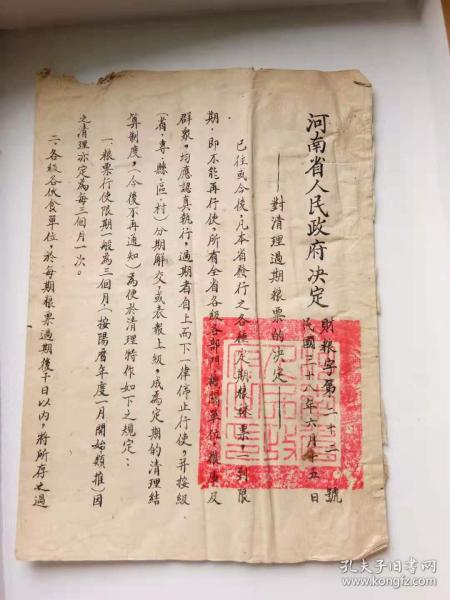 河南省人民政府决定
財粮字第二十二號
民國三十八年六月十五日
——對清理過期粮票的决定——
已往或今後，凡本省發行之各種定期粮秣票，一到限
期，即不能再行使，所有全省各級各部門，機關單位，粮庫及
群衆，均應認真執行，過期者自上而下一律停止行使，并按級
（省、專、縣、區、村）分期解交，或表報上級，成為定期的清理結
算制度，（今後不再通知）為便於清理特作如下之規定：
一、粮票行使限期一般為三個月（按陽曆年度一月開始類推）因
之清理亦定為每三個月一次。
二、各級各伙食單位，於每期粮票過期後十日以内，將所存之過
孔夫子旧书网
kongfz.com